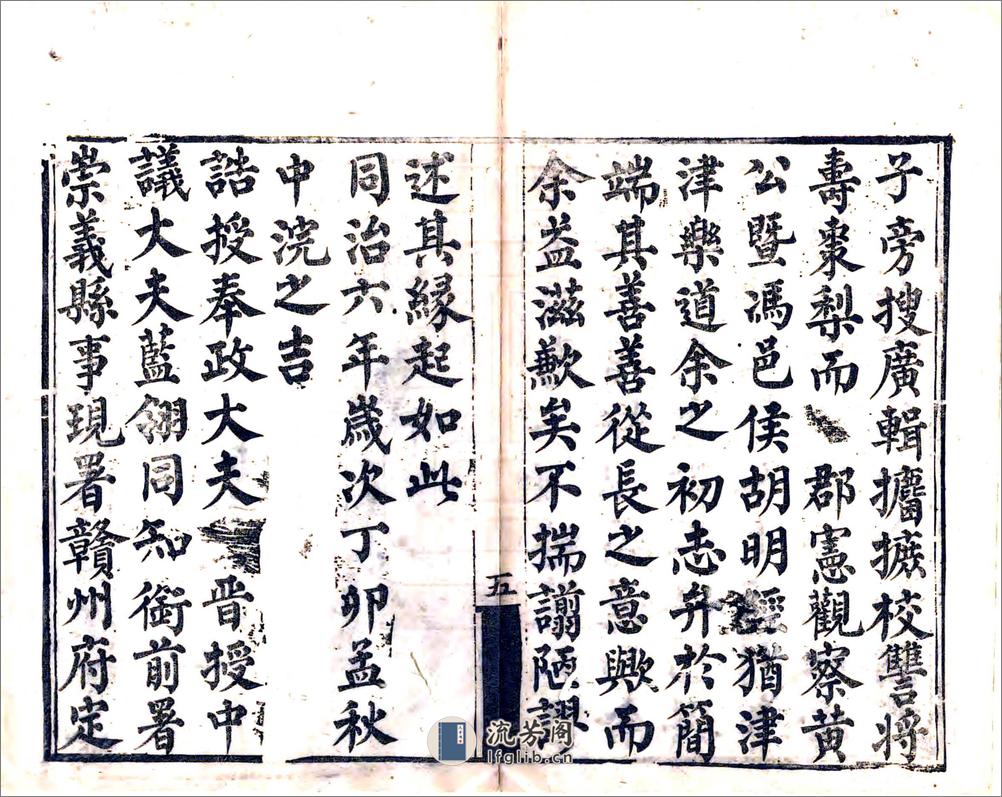 子旁搜廣輯攟摭校讐將
壽棗梨而 郡憲觀察黃
公暨馮邑侯胡明經猶津
津樂道余之初志弁於簡
端其善善從長之意歟而
余益滋歉矣不揣譾陋謬
五
述其緣起如此
同治六年歲次丁卯孟秋
中浣之吉
誥授奉政大夫 晉授中
議大夫藍翎同知銜前署
崇義縣事現署贛州府定
流芳阁
lfglib.cn